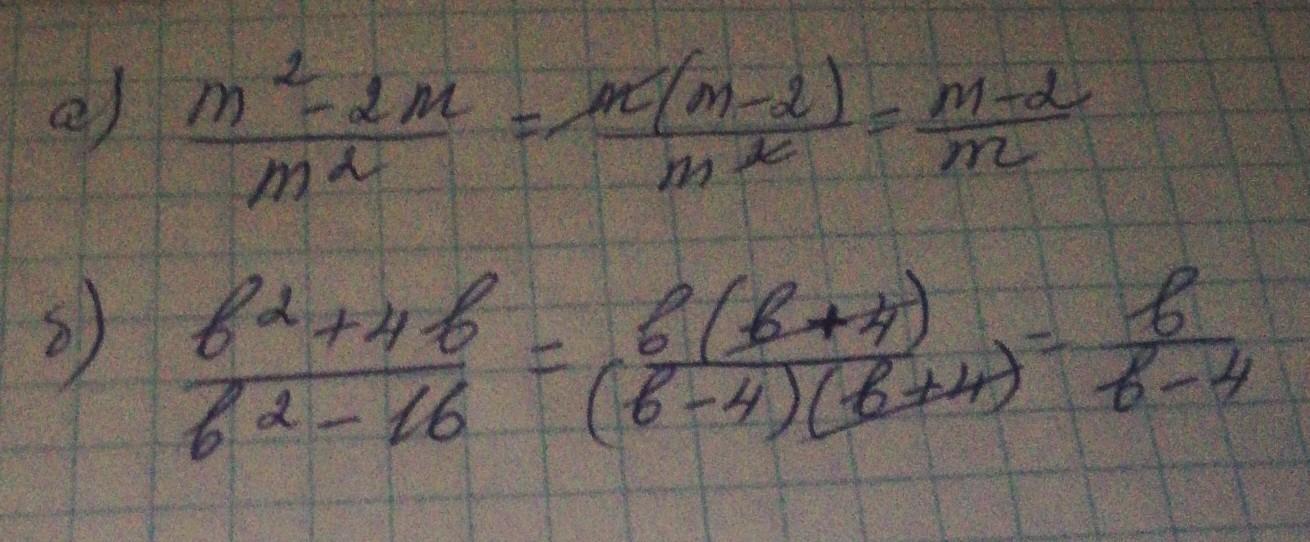 а) (m² - 2m)/m² = m(m-2)/m² = (m-2)/m
б) (b² + 4b)/(b² - 16) = b(b+4)/((b-4)(b+4)) = b/(b-4)